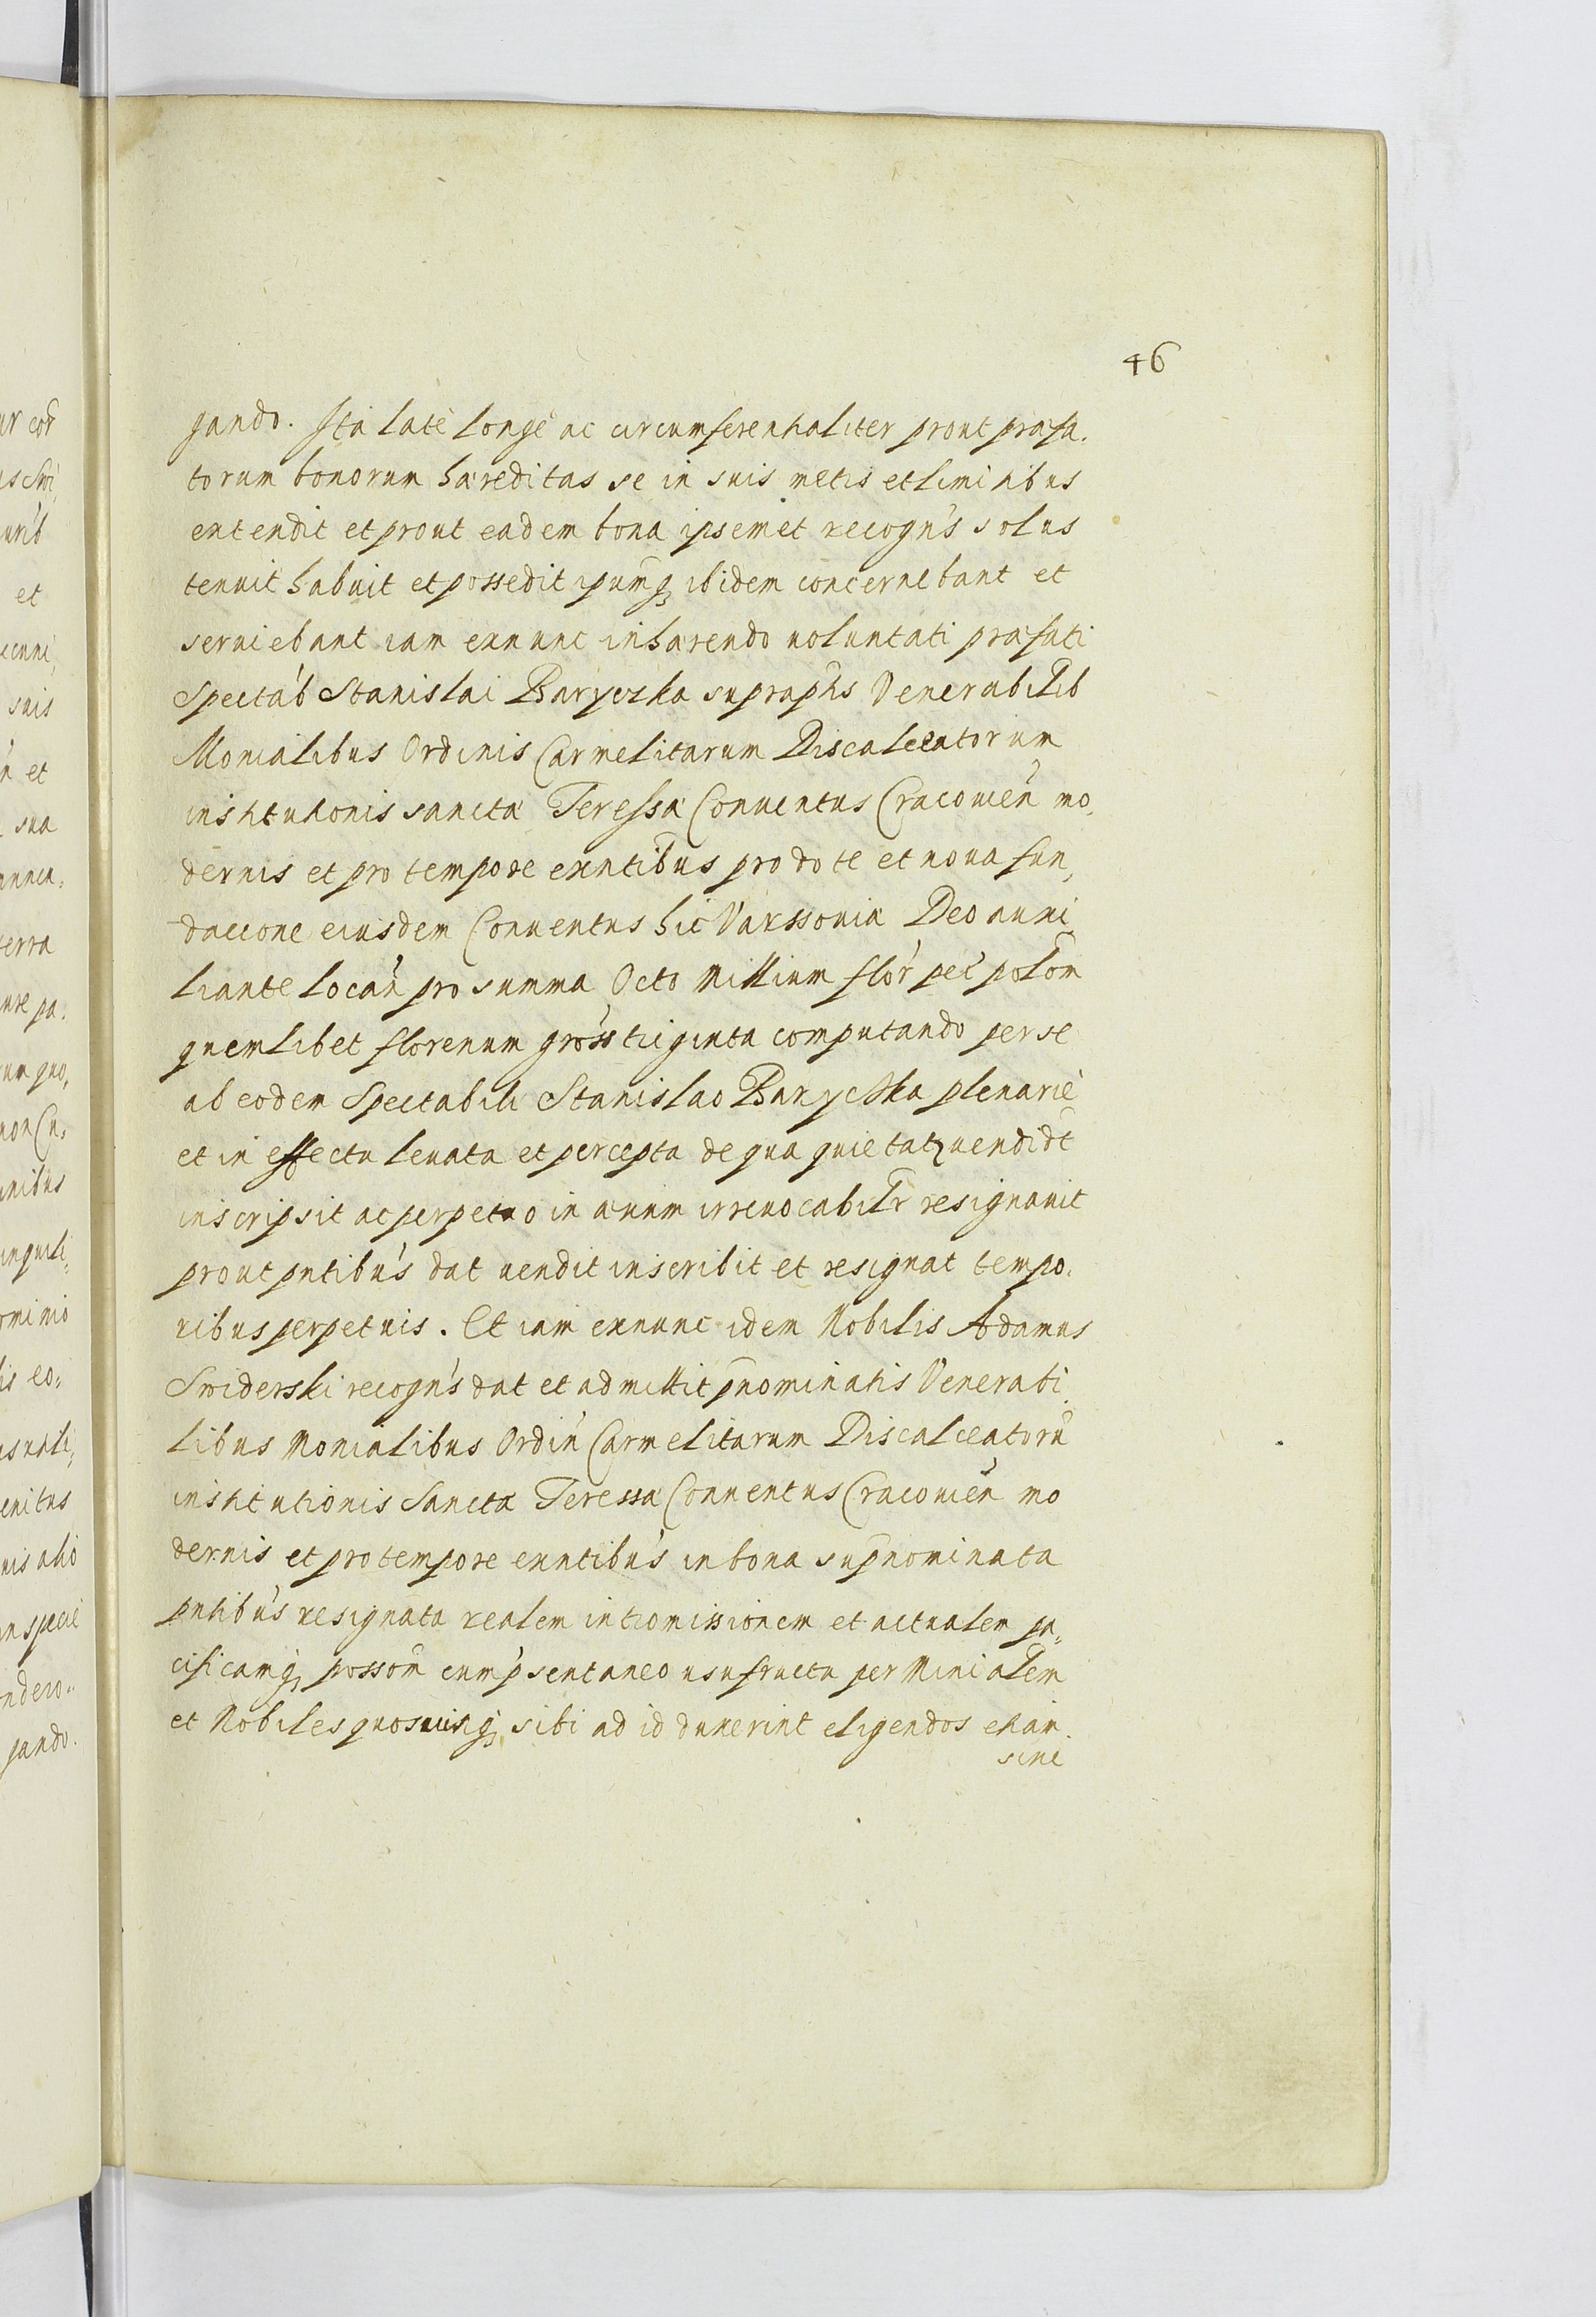 46
gando. Ita latè longè ac circumferentialiter prout præfa.
torum bonorum hæreditas se in suis metis et limitibus
extendit et prout eadem bona ipsemet recogn's solus
tenuit habuit et possedit ipumq3 ibidem concernebant et
seruiebant iam exnunc inhærendo uoluntati præfati
Spectab Stanislai Baryczka supraphs Venerabilib
Monialibus Ordinis Carmelitarum Discalceatorum
institutionis sanctæ Teressæ Conuentus Cracouień mo,
dernis et pro tempore exntibus pro dote et noua fun,
daccone eiusdem Conuentus hic Varssouiæ Deo auxi,
liante locań pro summa Octo Millium flor pec polom
quemlibet florenum gross triginta computando per se
ab eodem Spectabili Stanislao Baryczka plenariè
et in effectu leuata et percepta de qua quietatz uendidt
inscripsit ac perpetuo in æuum irreuocabilr resignauit
prout pntibus dat uendit inscribit et resignat tempo.
ribus perpetuis. Et iam exnunc idem Nobilis Adamus
Swiderski recogn's dat et admittit pnominatis Venerabi,
libus Monialibus Ordiń Carmelitarum Discalceatorū
institutionis Sanctæ Teressæ Conuentus Cracouień mo
dernis et pro tempore exntibus in bona supnominata
pntibus resignata realem intromissionem et actualem pa,
cificamq3 possom cum psentaneo usufructu per Minialem
et Nobiles quosuisq3 sibi ad id duxerint eligendos etiam.
sine
ur cor
us Swi,
et
suis
et
sua
terra
ure pa.
um quo,
non Cu,
ominio
is eo,
enitus
nis alio
in specie
gando.